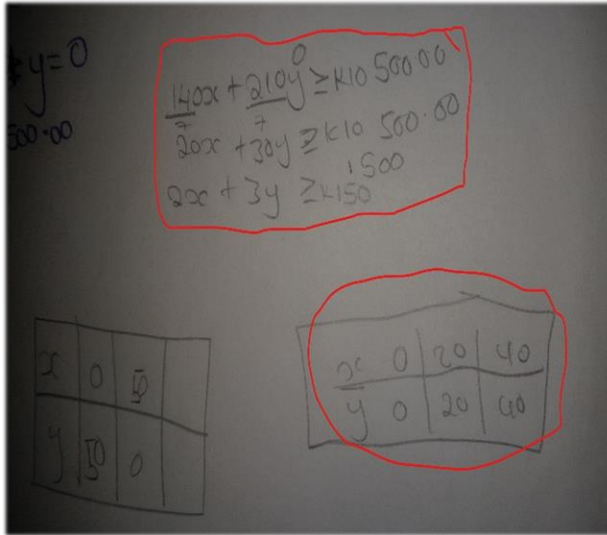 y=0
500.00
0
140x + 210y ≥ K10 500.00
7 7
20x + 30y ≥ K10 500.00
1500
2x + 3y ≥ K150
x 0 50
y 50 0
x 0 20 40
y 0 20 40